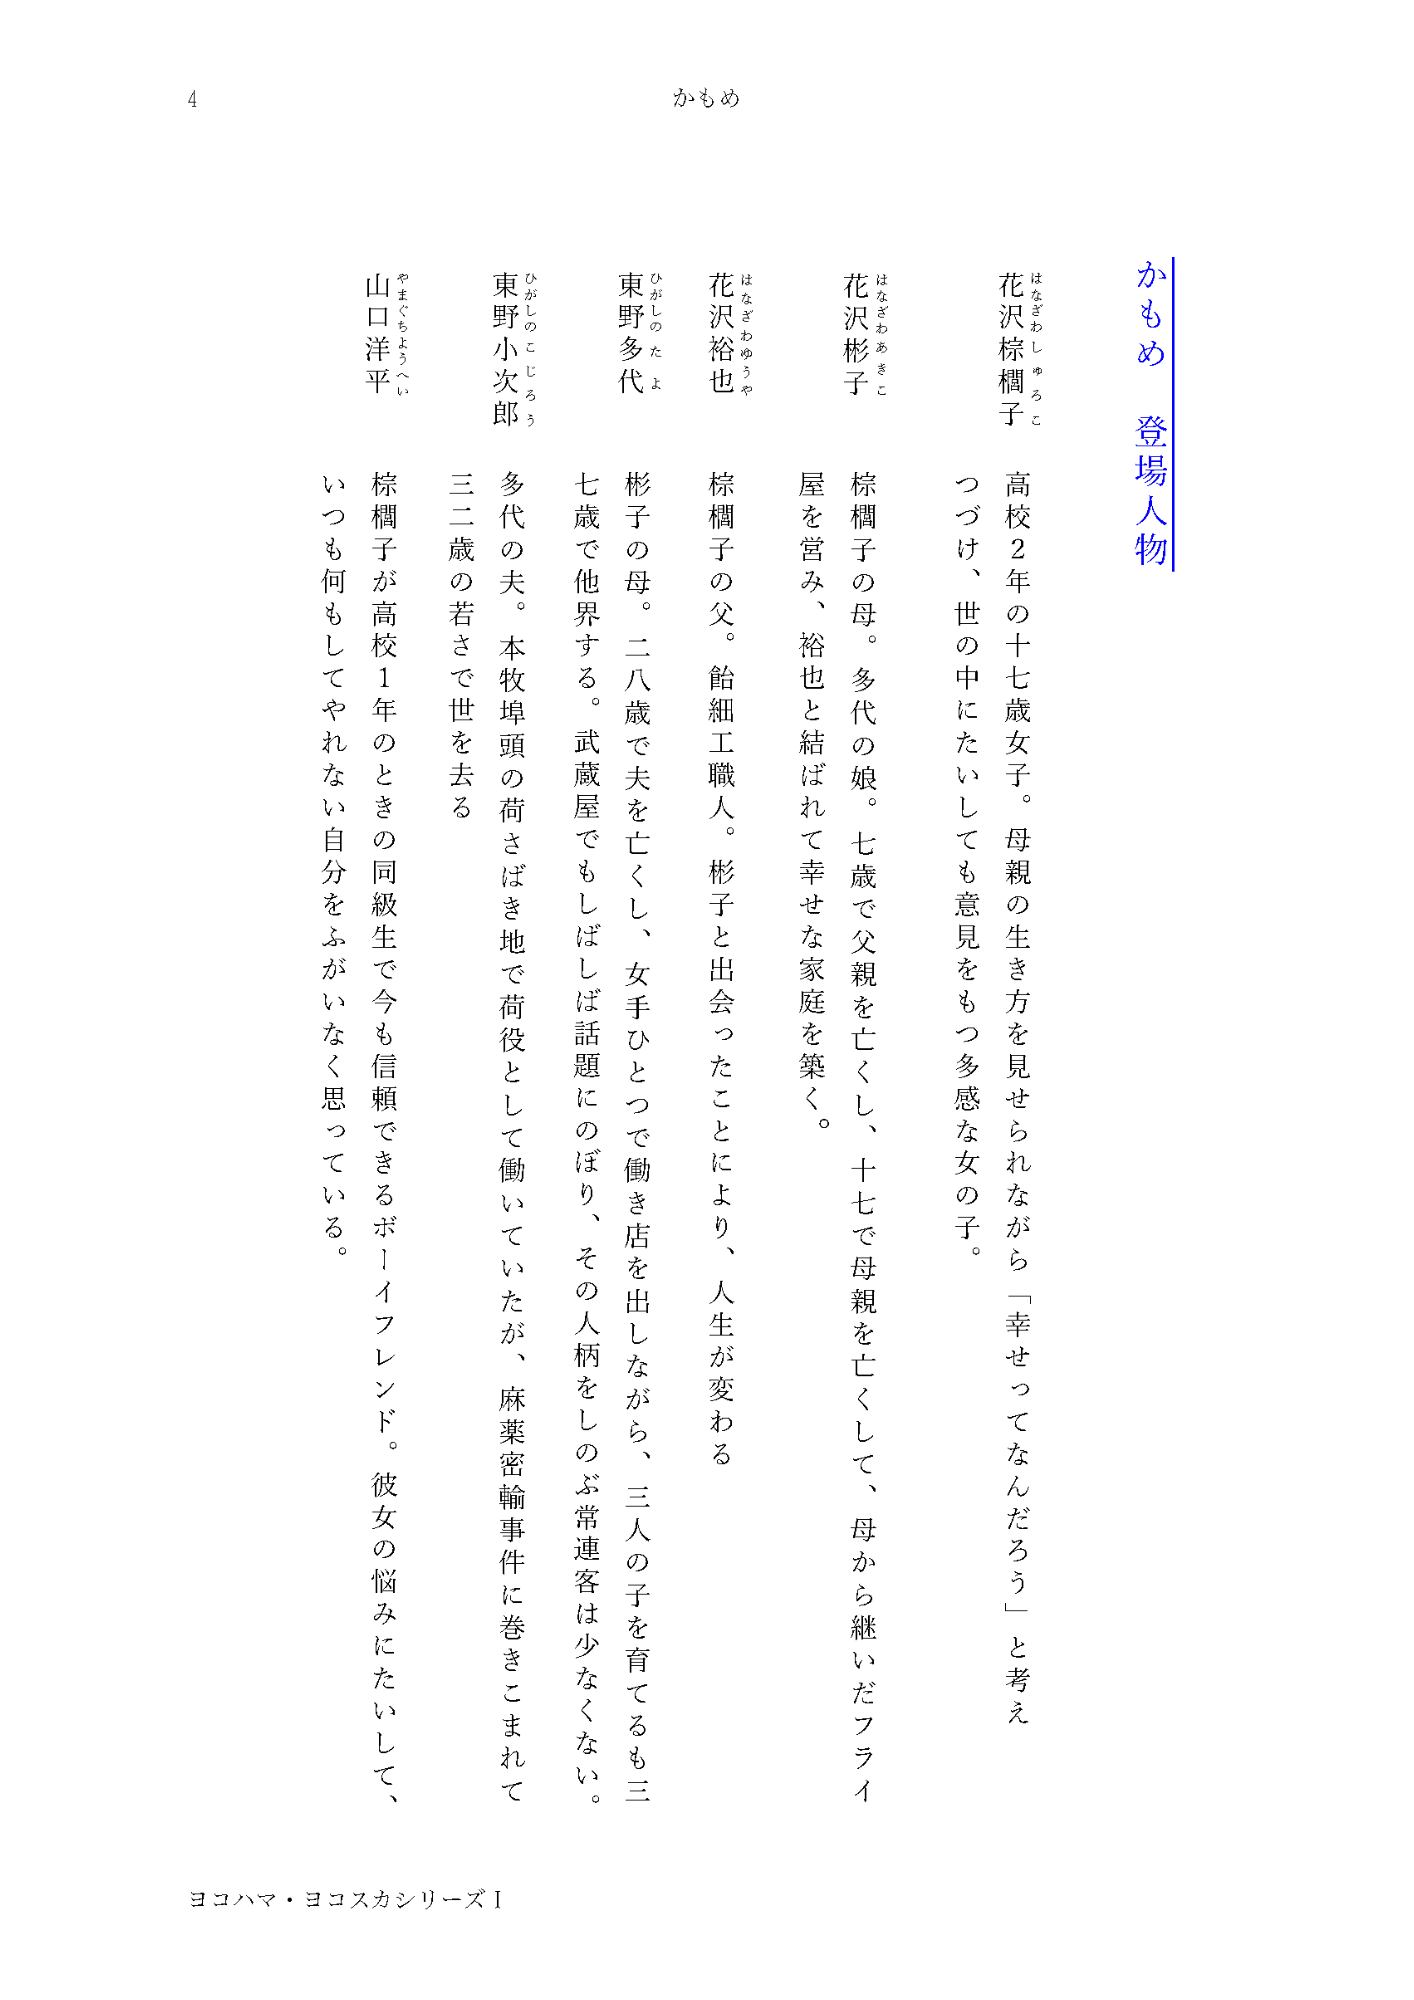 4
かもめ
かもめ　登場人物
花沢棕櫚子　高校２年の十七歳女子。母親の生き方を見せられながら「幸せってなんだろう」と考え
はなざわしゅろこ
つづけ、世の中にたいしても意見をもつ多感な女の子。
花沢彬子　棕櫚子の母。多代の娘。七歳で父親を亡くし、十七で母親を亡くして、母から継いだフライ
はなざわあきこ
屋を営み、裕也と結ばれて幸せな家庭を築く。
花沢裕也　棕櫚子の父。飴細工職人。彬子と出会ったことにより、人生が変わる
はなざわゆうや
東野多代　彬子の母。二八歳で夫を亡くし、女手ひとつで働き店を出しながら、三人の子を育てるも三
ひがしのたよ
七歳で他界する。武蔵屋でもしばしば話題にのぼり、その人柄をしのぶ常連客は少なくない。
東野小次郎　多代の夫。本牧埠頭の荷さばき地で荷役として働いていたが、麻薬密輸事件に巻きこまれて
ひがしのこじろう
三二歳の若さで世を去る
山口洋平　棕櫚子が高校１年のときの同級生で今も信頼できるボーイフレンド。彼女の悩みにたいして、
やまぐちようへい
いつも何もしてやれない自分をふがいなく思っている。
ヨコハマ・ヨコスカシリーズⅠ